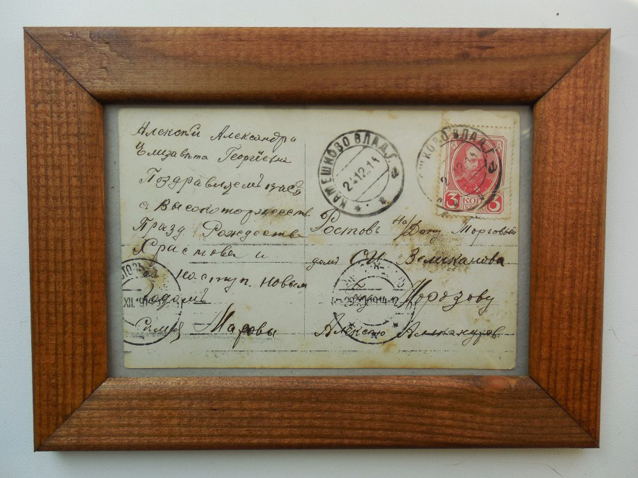 Алексей Александра
и
Елизавета Георгиевна
Поздравляемъ васъ
с Высокоторжеств
Празд Рождества
Христова и
наступ новым
годомъ
Маровы
КАМЕШКОВО ВЛАД. Г. а
24.12.14
КОВО ВЛАД. Г. а
3 КОП 3
Ростовъ на/Дону Торговый
домъ
Великанова
Морозову
Алексею